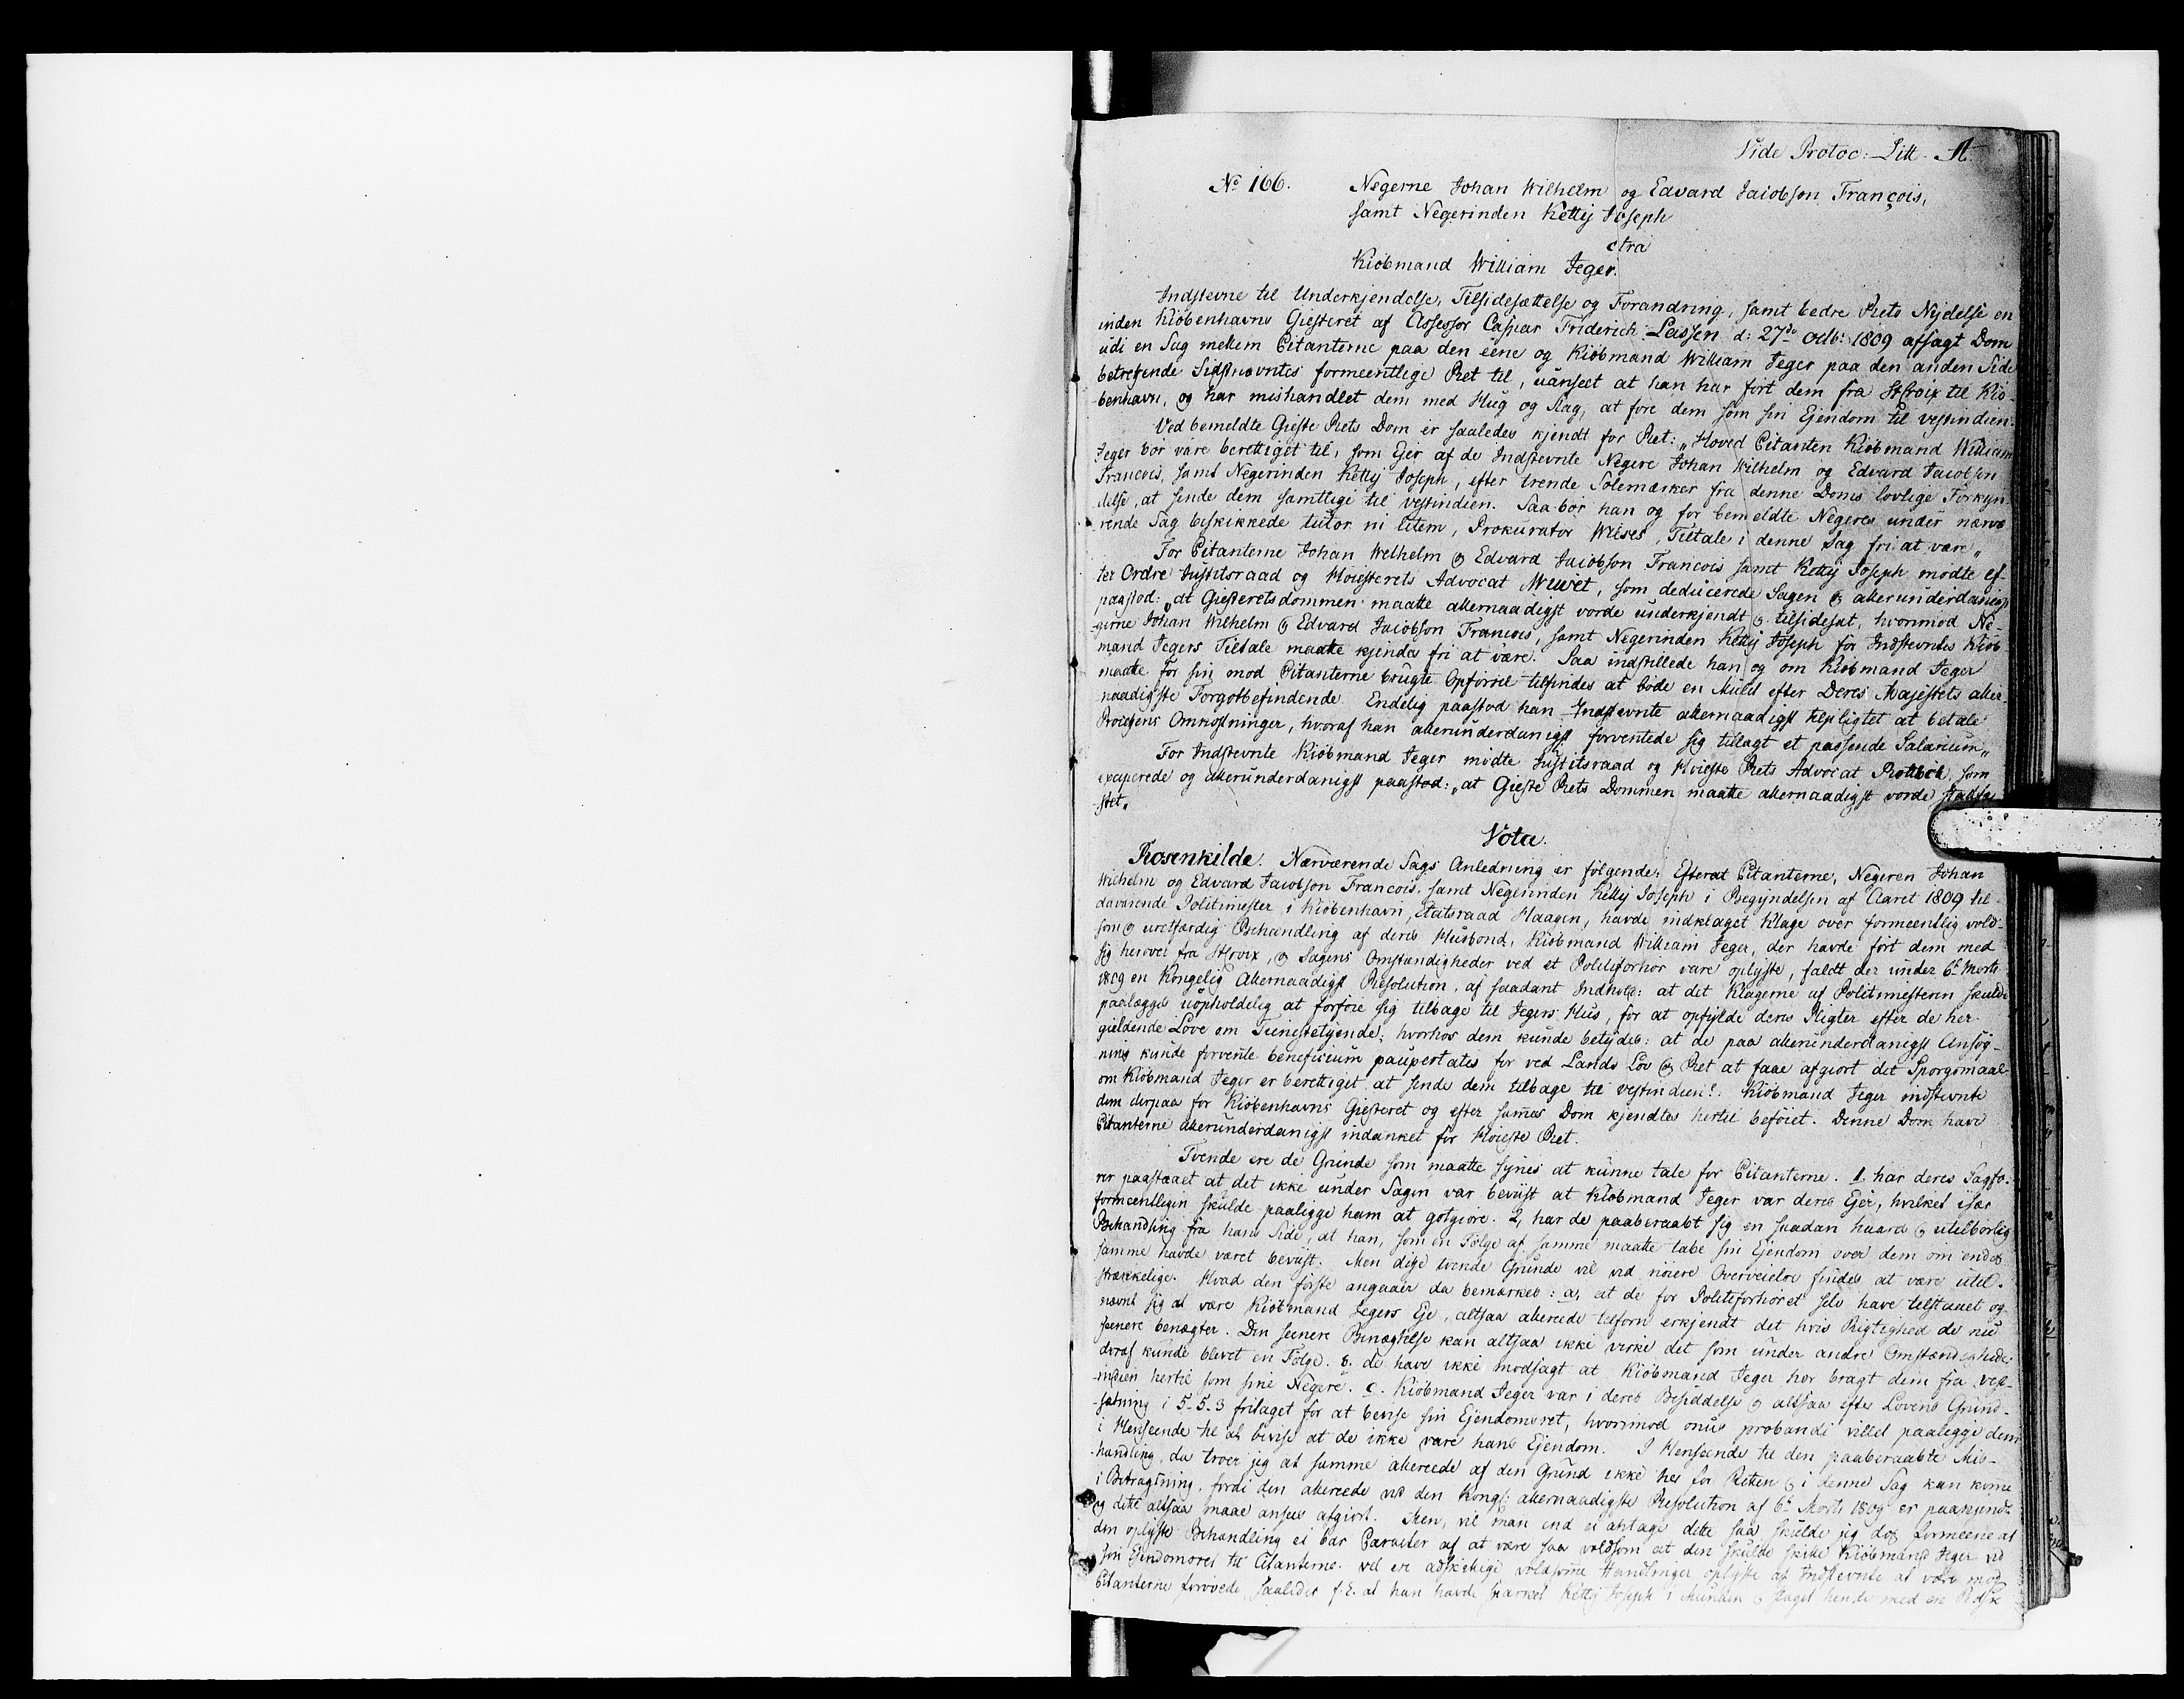 Vide Protoc: Litt. A.
No 166. Negerne Johan Wilhelm og Edvard Jacobson François,
samt Negerinden Kettij Joseph
ctra
Kiöbmand William Jeger.
Indstevne til Underkjendelse, Tilsidesættelse og Forandring, samt bedre Rets Nydelse en
inden Kiöbenhavns Giesteret af Assessor Caspar Friderich Lassen d: 27de Octb: 1809 afsagt Dom
udi en Sag mellem Citanterne paa den eene og Kiöbmand William Jeger paa den anden Side
betrefende Sidstnævntes formeentlige Ret til, uanseet at han har fört dem fra St Croix til Kiö-
benhavn, og har mishandlet dem med Hug og Slag, at före dem som sin Ejendom til vestindien.
Ved bemeldte Gieste Rets Dom er saaledes kjendt for Ret: „Hoved Citanten Kiöbmand William
Jeger bör være berettiget til, som Ejer af de Indstevnte Negere Johan Wilhelm og Edvard Jacobson
Francois, samt Negerinden Kettij Joseph, efter trende Solemærker fra denne Doms lovlige Forkyn-
delse, at sende dem samtlige til vestindien. Saa bör han og for bemeldte Negeres under nærvæ
rende Sag beskikkede tutor ni litem, Prokurator Wilses, Tiltale i denne Sag fri at være„
For Citanterne Johan Welhelm & Edvard Jacobson Francois samt Kettij Joseph mödte ef-
ter Ordre Justitsraad og Höiesterets Advocat Wivet, som deducerede Sagen & allerunderdanigst
paastod: „at Giesteretsdommen maatte allernaadigst vorde underkjendt & tilsidesat, hvorimod Ne-
gerne Johan Wilhelm & Edvard Jacobson Francois, samt Negerinden Kettij Joseph for Indstevntes Kiöb-
mand Jegers Tiltale maatte kjendes fri at være. Saa indstillede han og om Kiöbmand Jeger
maatte for sin mod Citanterne brugte Opförsel tilfindes at böde en Mulct efter Deres Majestets aller-
naadigste Forgotbefindende. Endelig paastod han Indstevnte allernaadigst tilpligtet at betale
Processens Omkostninger, hvoraf han allerunderdanigst forventede sig tillagt et passende Salarium„
For Indstevnte Kiöbmand Jeger mödte Justitsraad og Höieste Rets Advocat Rottböll, som
exciperede og allerunderdanigst paastod: „at Gieste Rets Dommen maatte allernaadigst vorde stadfæ
stet„
Vota.
Rosenkilde. Nærværende Sags Anledning er fölgende: Efterat Citanterne, Negeren Johan
Wilhelm og Edvard Jacobson Francois. samt Negerinden Kettij Joseph i Begyndelsen af Aaret 1809 til
daværende Politimester i Kiöbenhavn, Etatsraad Haagen, havde indklaget Klage over formeentlig vold-
som & uretfærdig Behandling af deres Husbond, Kiöbmand William Jeger, der havde fört dem med
sig herover fra St Croix, & Sagens Omstændigheder ved et Politieforhör vare oplyste, faldt der under 6te Marts
1809 en Kongelig Allernaadigst Resolution, af saadant Indhold: at det Klagerne af Politimesteren skulde
paalægges uopholdelig at forföie sig tilbage til Jegers Hus, for at opfylde deres Pligter efter de her
gieldende Love om Tienestetyende; hvorhos dem kunde betydes: at de paa allerunderdanigst Ansög-
ning kunde forvente beneficium paupertatis for ved Lands Lov & Ret at faae afgiort det Spörgsmaal
om Kiöbmand Jeger er berettiget at sende dem tilbage til vestindien?. Kiöbmand Jeger indstevnte
dem derpaa for Kiöbenhavns Giesteret og efter sammes Dom kjendtes hertil beföiet. Denne Dom have
Citanterne allerunderdanigst indanket for Höieste Ret.
Tvende ere de Grunde som maatte synes at kunne tale for Citanterne. 1, har deres Sagfö-
rer paastaaet at det ikke under Sagen var beviist at Kiöbmand Jeger var deres Ejer, hvilket især
formeentligen skulde paaligge ham at gotgiöre. 2, har de paaberaabt sig en saadan haard & utilbörlig
Behandling fra hans Side, at han, som en Fölge af samme maatte tabe sin Ejendom over dem om endog
samme havde været beviist. Men disse tvende Grunde vil ved nöiere Overveielse findes at være util-
strækkelige. Hvad den förste angaaer da bemærkes: a, at de for Politieforhöret selv have tilstaaet og
nævnt sig at være Kiöbmand Jegers Eje, altsaa allerede tilforn erkjendt det hvis Rigtighed de nu
senere benægter. Den seenere Benægtelse kan altsaa ikke virke det som under andre Omstændigheder
deraf kunde blevet en Fölge. b. de have ikke modsagt at Kiöbmand Jeger har bragt dem fra vest-
indien hertil som sine Negere. c. Kiöbmand Jeger var i deres Besiddelse & altsaa efter Lovens Grund-
sætning i 5-5-3 fritaget for at bevise sin Ejendomsret, hvorimod onus probandi villet paaligge dem
i Henseende til at bevise at de ikke vare hans Ejendom. I Henseende til den paaberaabte Mis-
handling, da troer jeg at samme allerede af den Grund ikke her for Retten & i denne Sag kan komme
i Betragtning, fordi den allerede ved den Kongl: allernaadigste Resolution af 6te Marts 1809 er paakjendt
og dette altsaa maae ansees afgiort. Men, vil man end ei antage dette saa skulde jeg dog formeene at
den oplyste Behandling ei bar Caracter af at være saa voldsom at den skulde skille Kiöbmand Jeger ved
sin Ejendomsret til Citanterne. vel ere adskillige voldsomme Handlinger oplyste af Indstevnte at være mod
Citanterne forövede, saaledes f: E. at han havde sparket Kettij Joseph i Munden & slaget hende med en